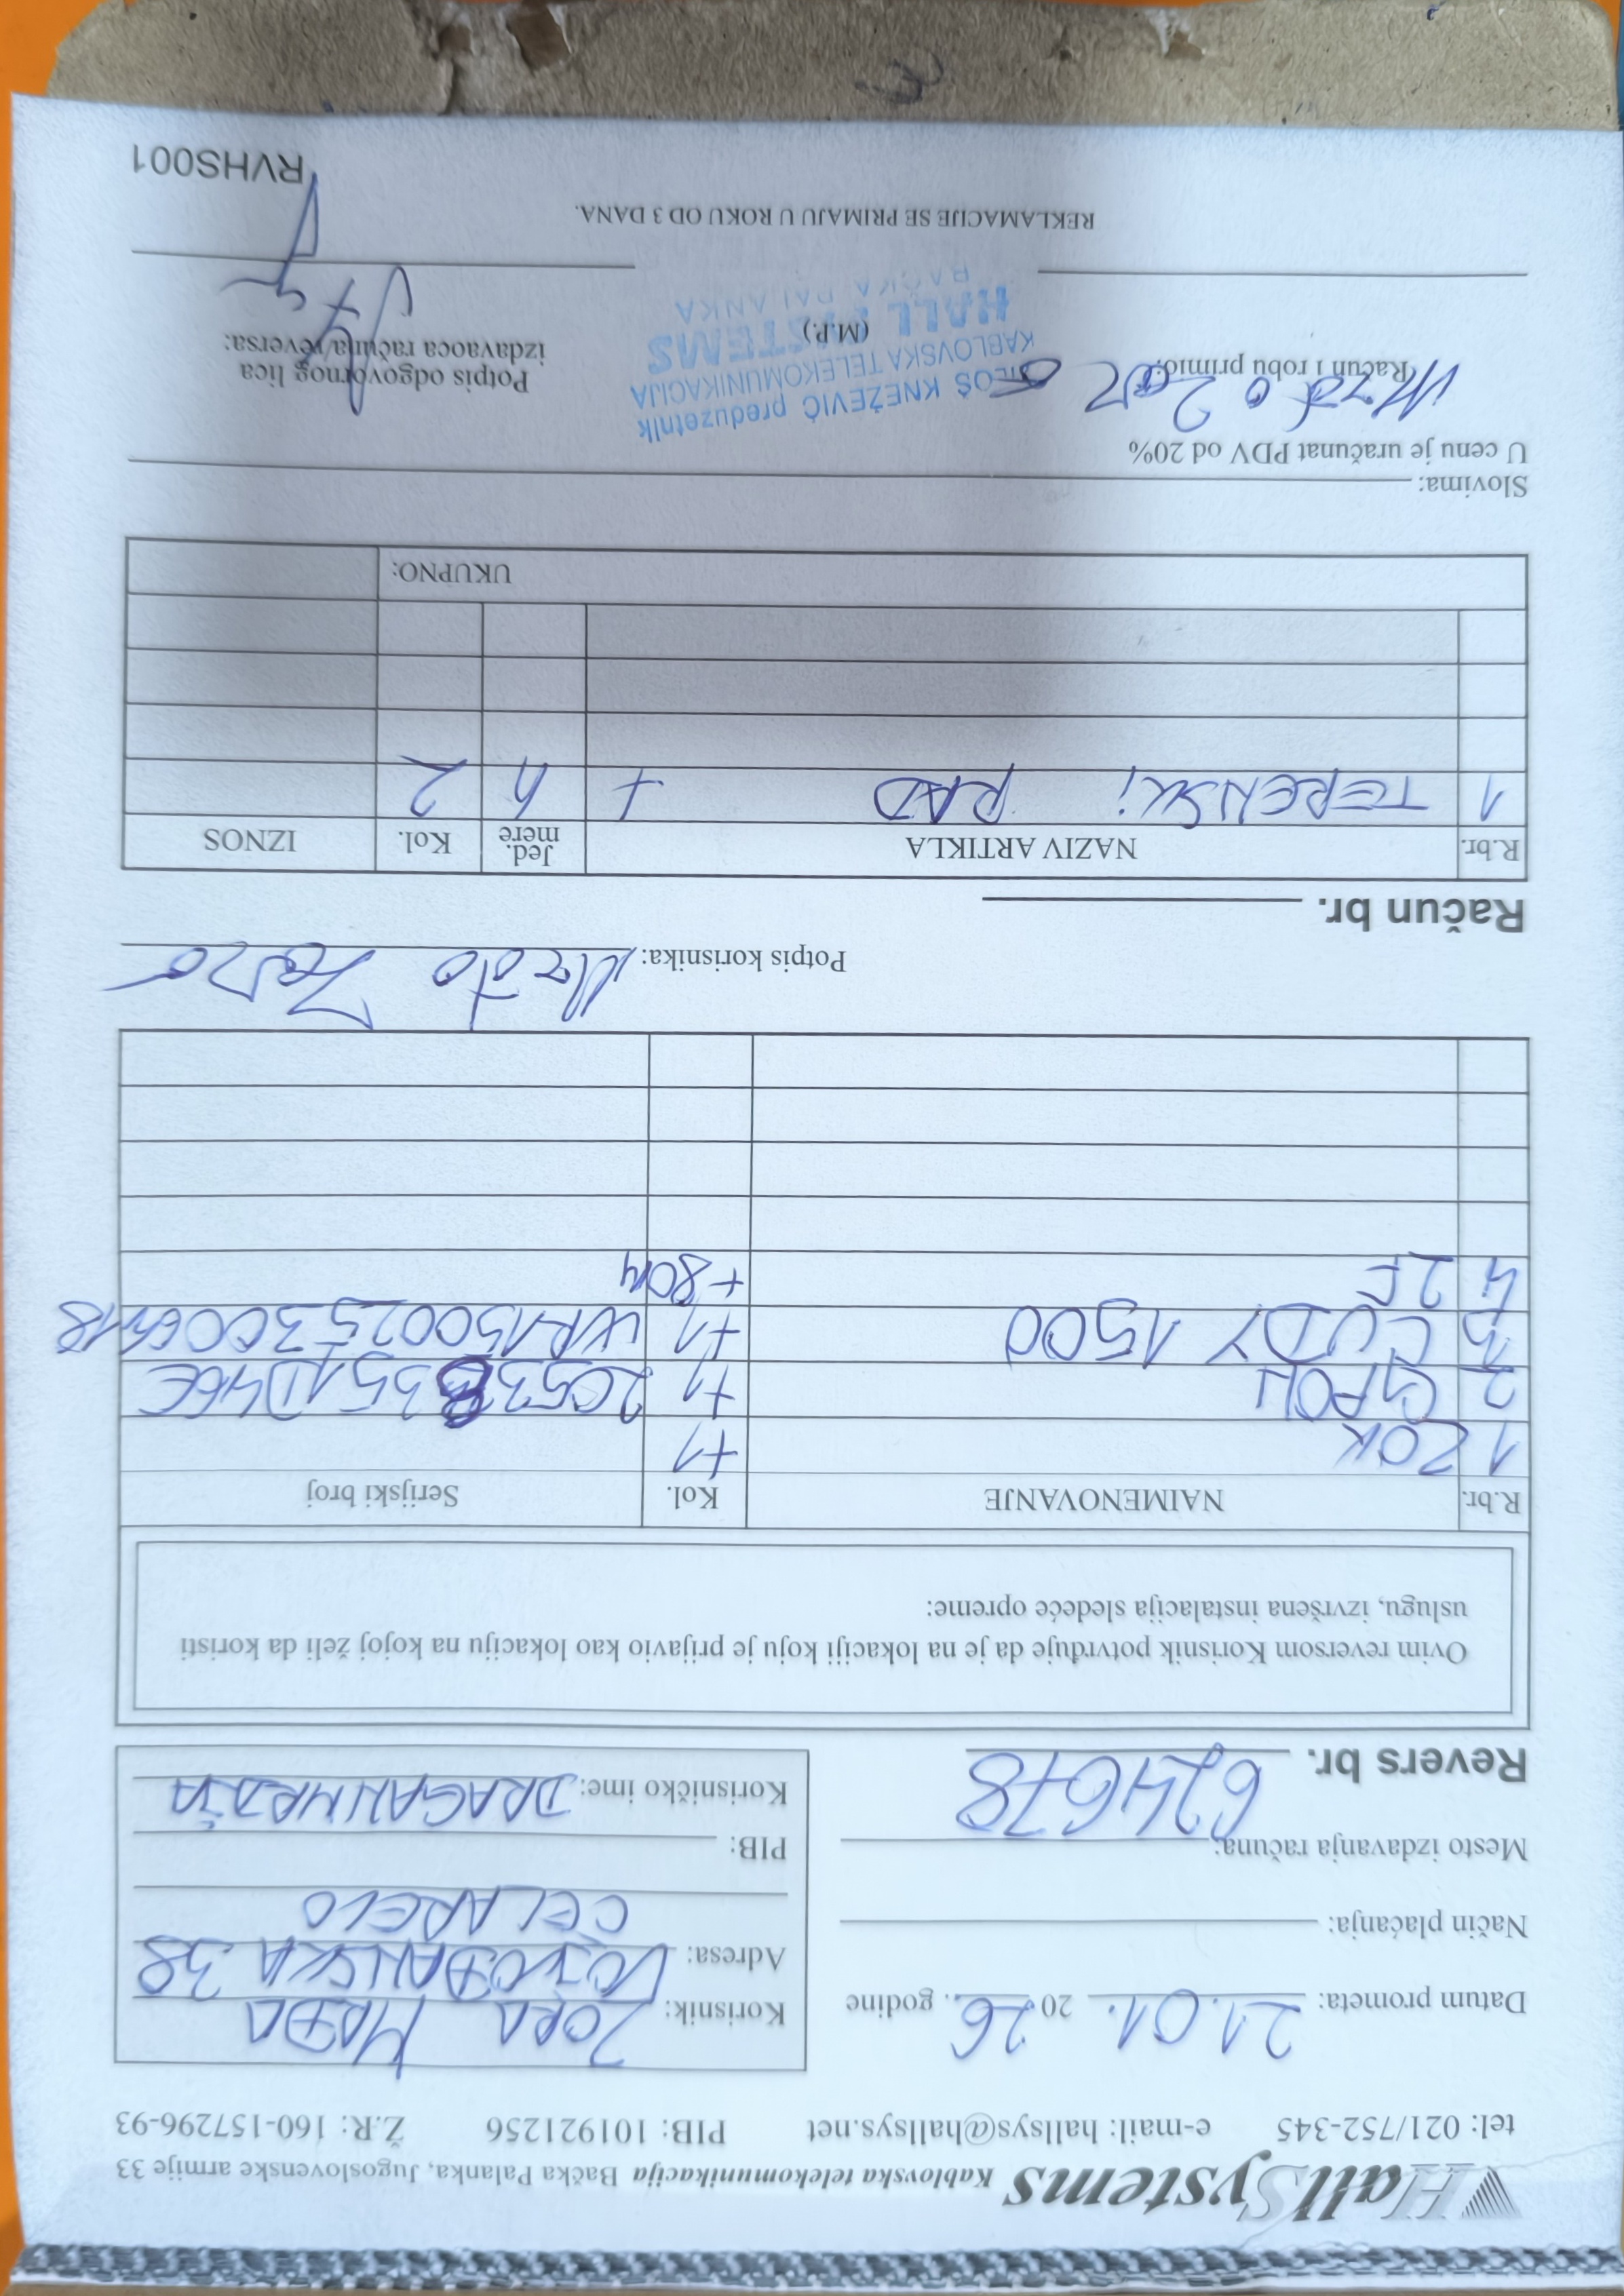 HallSystems Kablovska telekomunikacija Bačka Palanka, Jugoslovenske armije 33
tel: 021/752-345 e-mail: hallsys@hallsys.net PIB: 101921256 Ž.R: 160-157296-93
Datum prometa: 21.01. 20 26. godine
Način plaćanja:
Mesto izdavanja računa:
Revers br. 624678
Korisnik: ZORA MAĐA
Adresa: VOJVOĐANSKA 38
ČELAREVO
PIB:
Korisničko ime: DRAGANMRDJA
Ovim reversom Korisnik potvrđuje da je na lokaciji koju je prijavio kao lokaciju na kojoj želi da koristi
uslugu, izvršena instalacija sledeće opreme:
R.br. NAIMENOVANJE Kol. Serijski broj
1 ZOK +1
2 GPON +1
3 CUDY 1500 +1
4 2F +80M
Potpis korisnika:
Račun br.
R.br. NAZIV ARTIKLA Jed. mere Kol. IZNOS
1 TERENSKI RAD + h 2
UKUPNO:
Slovima:
U cenu je uračunat PDV od 20%
Račun i robu primio:
(M.P.)
MILOŠ KNEŽEVIĆ preduzetnik
KABLOVSKA TELEKOMUNIKACIJA
HALL SYSTEMS
BAČKA PALANKA
Potpis odgovornog lica
izdavaoca računa/reversa:
REKLAMACIJE SE PRIMAJU U ROKU OD 3 DANA.
RVHS001